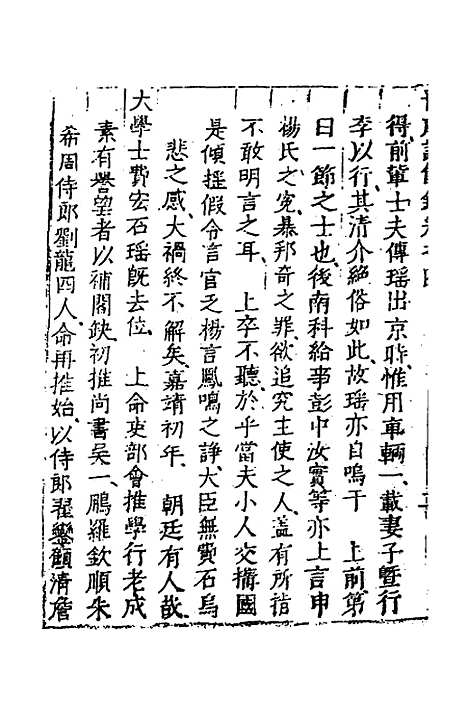 得前輩士夫傳瑶出京時惟用車輛一載妻子暨行
李以行其清介絕俗如此故瑶亦自鳴于 上前第
曰一節之士也後南科給事彭中汝寔等亦上言申
楊氏之寃暴邦奇之罪欲追究主使之人盖有所指
不敢明言之耳 上卒不聽於乎當夫小人交搆國
是傾揺假令言官乏楊言鳳鳴之諍大臣無費石烏
悲之感大禍終不解矣嘉靖初年 朝廷有人哉
大學士費宏石瑶旣去位 上命吏部會推學行老成
素有譽望者以補閣缺初推尚書吳一鵬羅欽順朱
希周侍郎劉龍四人命再推始以侍郎翟鑾顧清詹